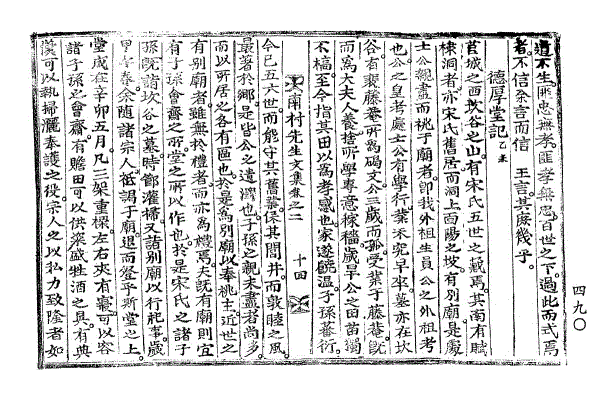 道不生所忠無孝匪孝無忠百世之下過此而式焉
者不信余言而信 王言其庶幾乎
德厚堂記 乙未
莒城之西坎谷之山有宋氏五世之藏焉其南有賦
棟洞者亦宋氏舊居而洞上面陽之坡有別廟是處
士公親盡而祧于廟者卽我外祖生員公之外祖考
也公之皇考處士公有學行業未究早卒墓亦在坎
谷有裴藤菴所爲碣文公三歲而孤受業于藤菴旣
而爲大夫人養捨所學專意稼穡歲旱公之田苗獨
不槁至今指其田以爲孝感也家遂饒溫子孫蕃衍
雨村先生文集卷之二 十四
今已五六世而能守其舊業保其閭井而敦睦之風
最著於鄕是皆公之遺澤也子孫之親未盡者尚多
而以所居之各有區也於是爲別廟以奉祧主近世之
有別廟者雖無於禮者而亦爲禮焉夫旣有廟則宜
有子孫會齋之所堂之所以作也於是宋氏之諸子
孫旣詣坎谷之墓時節灌掃又詣別廟以行祀事歲
甲午春余隨諸宗人祗謁于廟退而登乎斯堂之上
堂成在辛卯五月凡三架重樑左右夾有寢可以容
諸子孫之會齋有贍田可以供粢盛牲酒之具有典
僕可以執掃灑奉護之役宗人之以私力致隆者如
四九〇